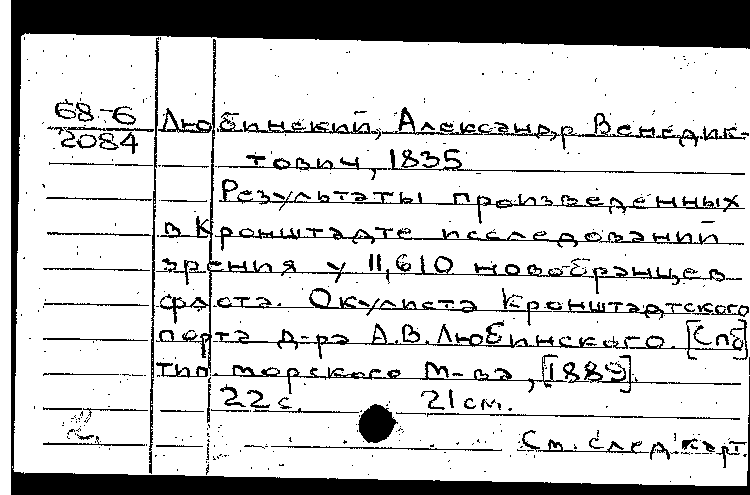 68-6
2084
Любинский, Александр Венедик-
тович, 1835
Результаты произведенных
в Кронштадте исследований
зрения у 11,610 новобранцев
флота. Окулиста Кронштадтского
порта д-ра А.В. Любинского. [Спб]
тип. морского м-ва, [1889].
22 с. 21 см.
2.
См. след. карт.